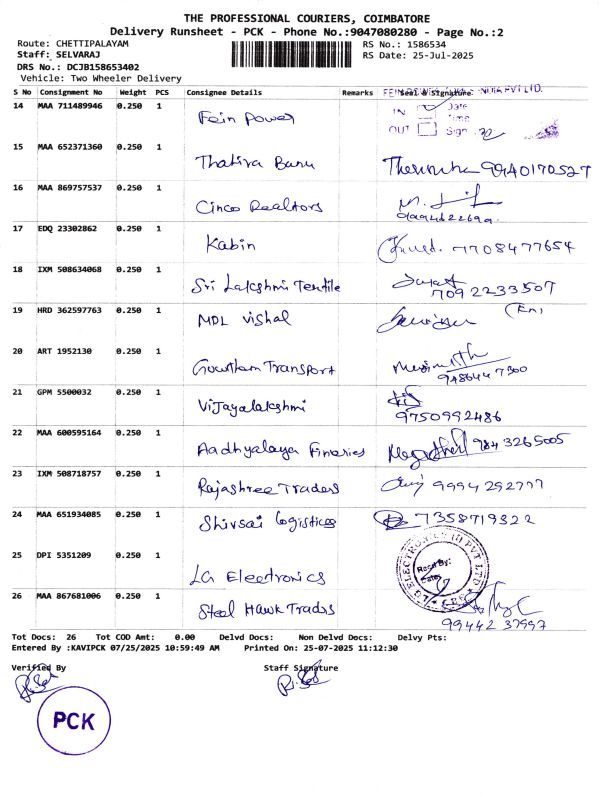 THE PROFESSIONAL COURIERS, COIMBATORE
Delivery Runsheet - PCK - Phone No.:9047080280 - Page No.:2
Route: CHETTIPALAYAM
Staff: SELVARAJ
DRS No.: DCJB158653402
Vehicle: Two Wheeler Delivery
RS No.: 1586534
RS Date: 25-Jul-2025
S No Consignment No Weight PCS Consignee Details Remarks Seal & Signature
14 MAA 711489946 0.250 1 Fein Power
IN Date
Time
OUT Sign
15 MAA 652371360 0.250 1 Thativa Banu 9940170527
16 MAA 869757537 0.250 1 Cinco Realtors
17 EDQ 23302862 0.250 1 Kabin 7708477654
18 IXM 508634068 0.250 1 Sri Lakshmi Textile 7092233507
19 HRD 362597763 0.250 1 MDL Vishal
20 ART 1952130 0.250 1 Gowtham Transport
21 GPM 5500032 0.250 1 Vijayalakshmi 9750992486
22 MAA 600595164 0.250 1 Aadhyalaya Finaries 9843265005
23 IXM 508718757 0.250 1 Rajashree Traders 9994292777
24 MAA 651934085 0.250 1 Shivsai logistices 7358719322
25 DPI 5351209 0.250 1 LG Electronics
Recd By:
Date:
26 MAA 867681006 0.250 1 Steel Hawk Trads 9944237997
Tot Docs: 26 Tot COD Amt: 0.00 Delvd Docs: Non Delvd Docs: Delvy Pts:
Entered By :KAVIPCK 07/25/2025 10:59:49 AM Printed On: 25-07-2025 11:12:30
Verified By Staff Signature
PCK